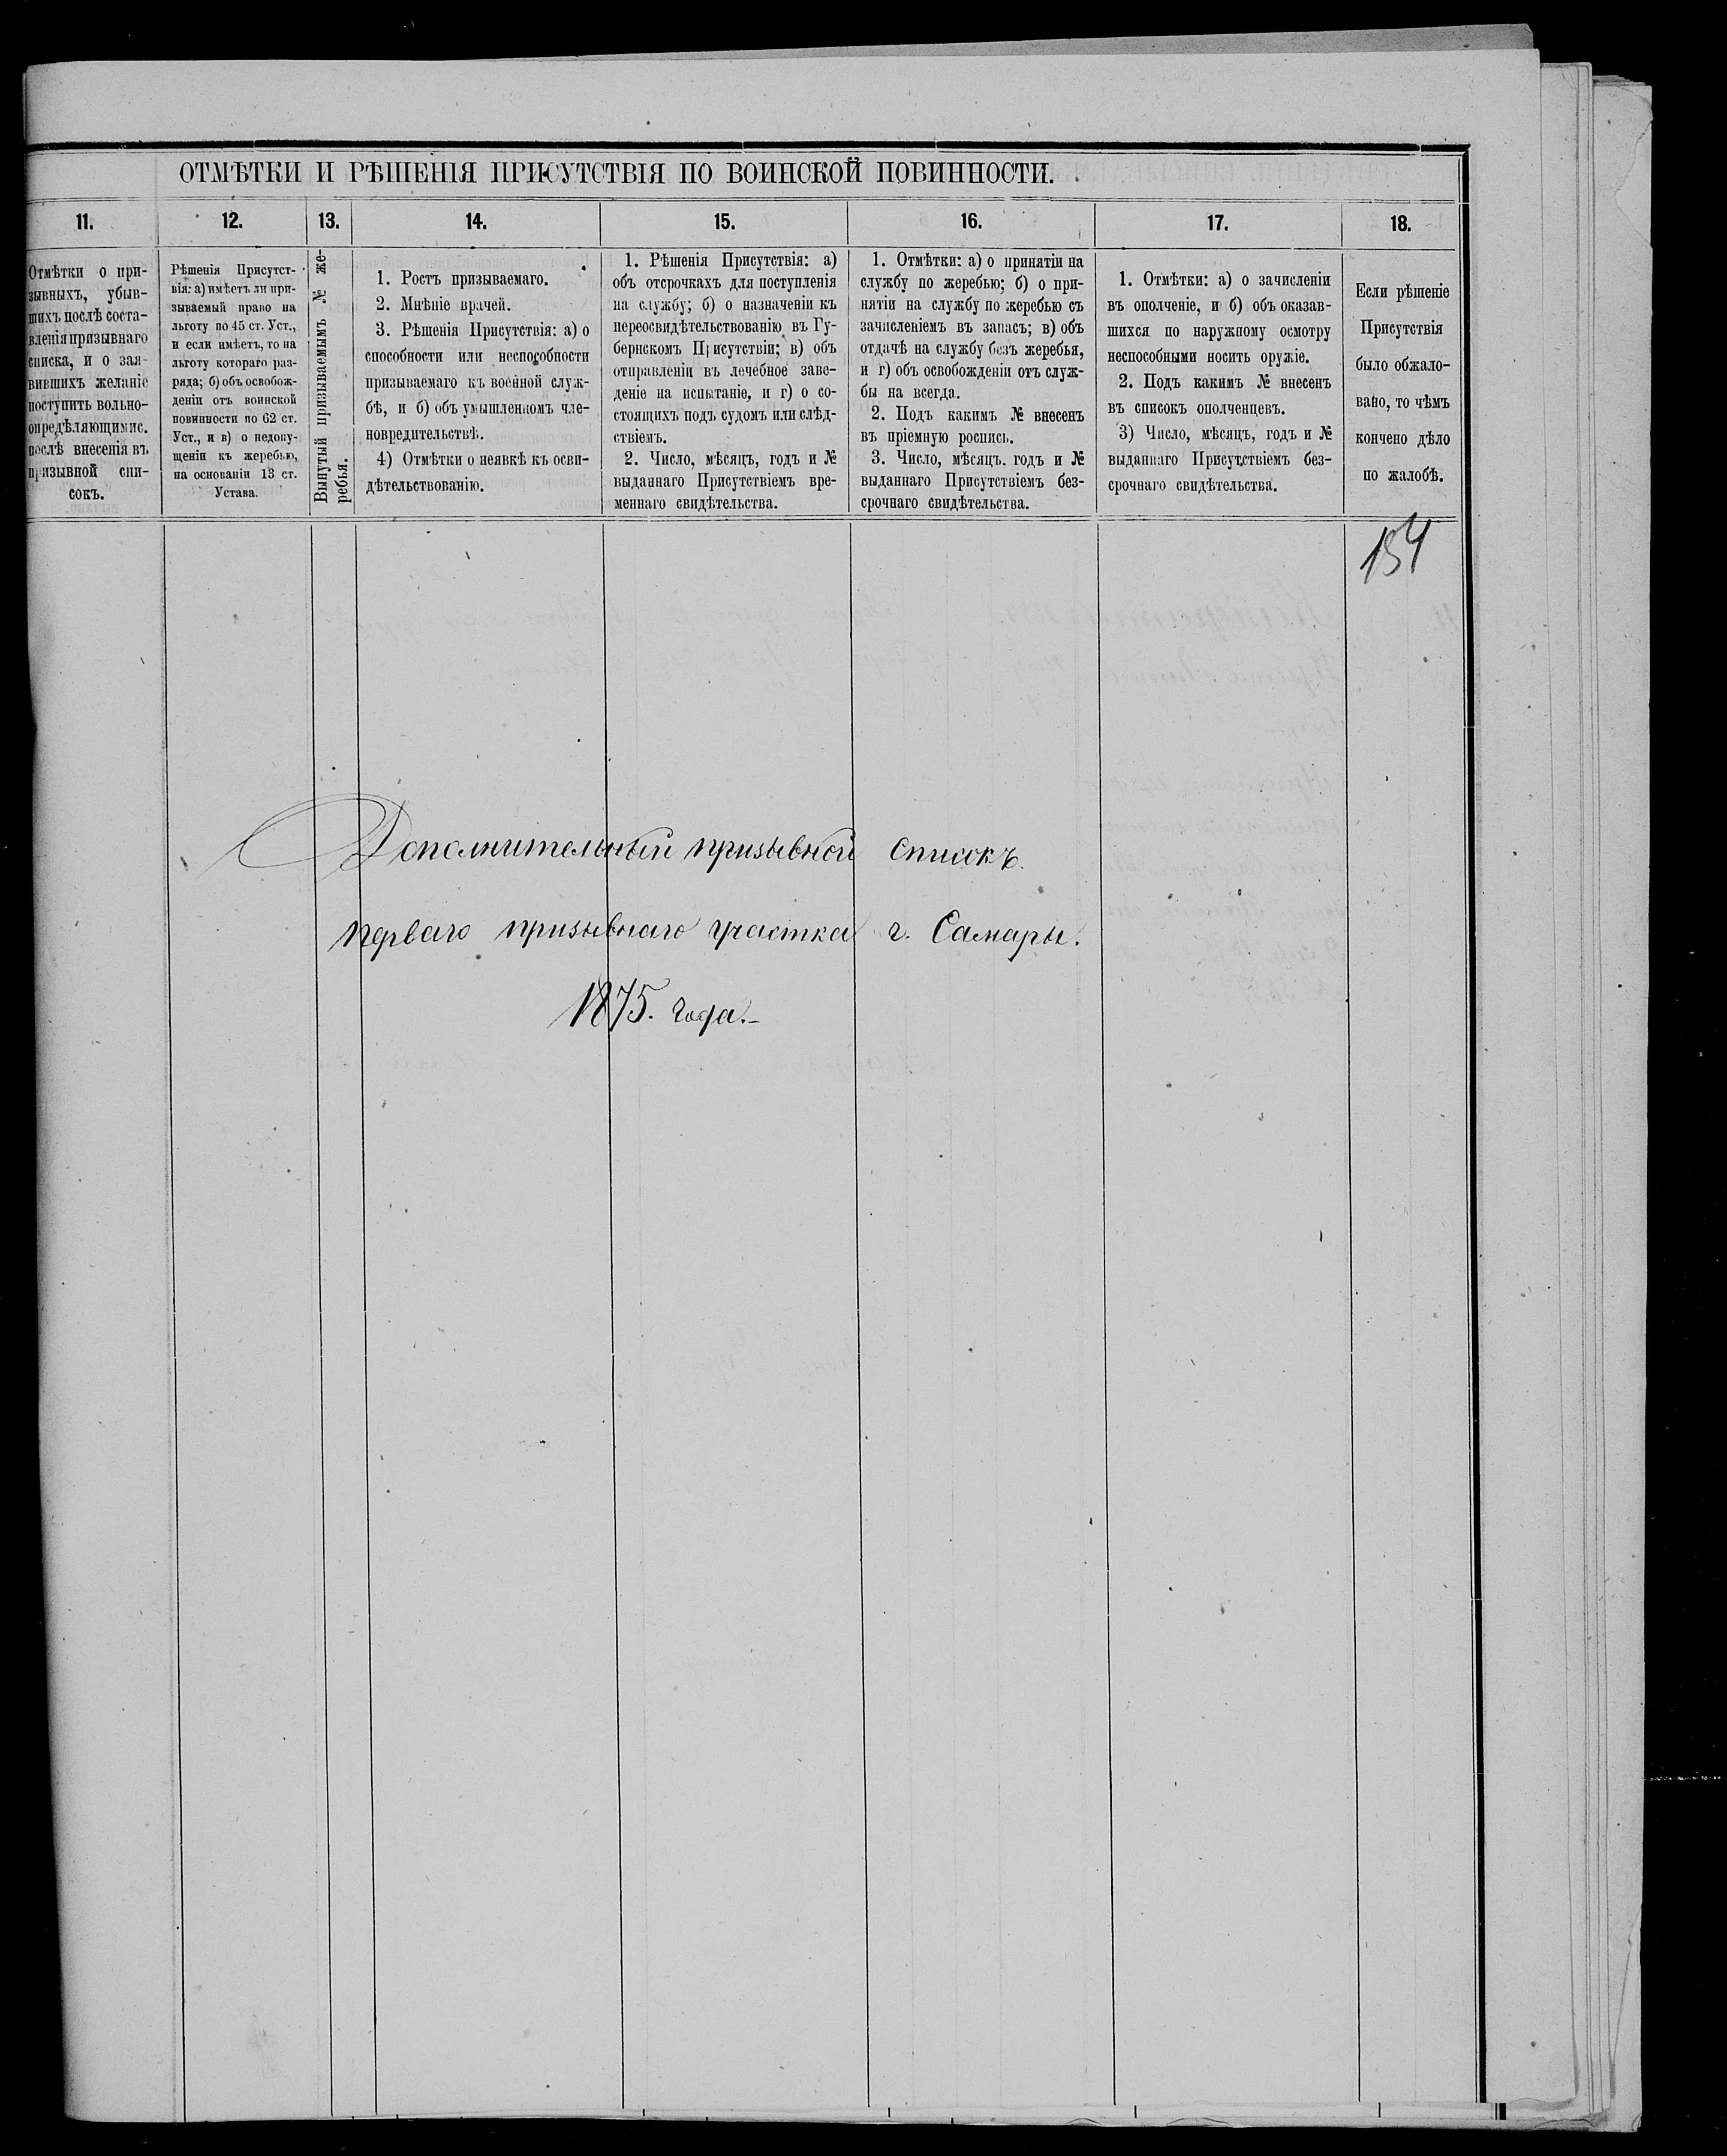 ОТМѢТКИ И РѢШЕНІЯ ПРИСУТСТВІЯ ПО ВОИНСКОЙ ПОВИННОСТИ.
11.
Отмѣтки о при-
зывныхъ, убыв-
шихъ послѣ соста-
вленія призывнаго
списка, и о зая-
вившихъ желаніе
поступить вольно-
опредѣляющимис.
послѣ внесенія въ
призывной спи-
сокъ.
12.
Рѣшенія Присутст-
вія: а) имѣетъ ли при-
зываемый право на
льготу по 45 ст. Уст.,
и если имѣетъ, то на
льготу котораго раз-
ряда; б) объ освобож-
деніи отъ воинской
повинности по 62 ст.
Уст., и в) о недопу-
щеніи къ жеребью,
на основаніи 13 ст.
Устава.
13.
Вынутый призываемымъ № же-
ребья.
14.
1. Ростъ призываемаго.
2. Мнѣніе врачей.
3. Рѣшенія Присутствія: а) о
способности или неспособности
призываемаго къ военной служ-
бѣ, и б) объ умышленномъ чле-
новредительствѣ.
4) Отмѣтки о неявкѣ къ осви-
дѣтельствованію.
15.
1. Рѣшенія Присутствія: а)
объ отсрочкахъ для поступленія
на службу; б) о назначеніи къ
переосвидѣтельствованію въ Гу-
бернскомъ Присутствіи; в) объ
отправленіи въ лечебное заве-
деніе на испытаніе, и г) о со-
стоящихъ подъ судомъ или слѣд-
ствіемъ.
2. Число, мѣсяцъ, годъ и №
выданнаго Присутствіемъ вре-
меннаго свидѣтельства.
16.
1. Отмѣтки: а) о принятіи на
службу по жеребью; б) о при-
нятіи на службу по жеребью съ
зачисленіемъ въ запасъ; в) объ
отдачѣ на службу безъ жеребья,
и г) объ освобожденіи отъ служ-
бы на всегда.
2. Подъ какимъ № внесенъ
въ пріемную роспись.
3. Число, мѣсяцъ. годъ и №
выданнаго Присутствіемъ без-
срочнаго свидѣтельства.
17.
1. Отмѣтки: а) о зачисленіи
въ ополченіе, и б) объ оказав-
шихся по наружному осмотру
неспособными носить оружіе.
2. Подъ какимъ № внесенъ
въ списокъ ополченцевъ.
3) Число, мѣсяцъ, годъ и №
выданнаго Присутствіемъ без-
срочнаго свидѣтельства.
18.
Если рѣшеніе
Присутствія
было обжало-
вано, то чѣмъ
кончено дѣло
по жалобѣ.
154
Дополнительный призывной списокъ.
перваго призывнаго участка г. Самары.
1875. года.-